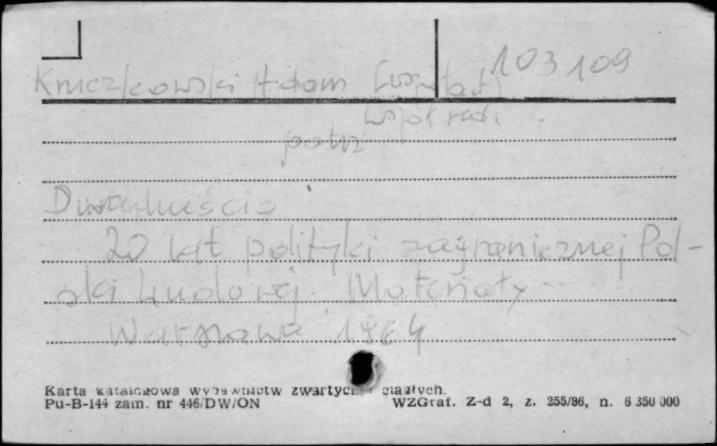 103109
Kruczkowski Adam [współaut.]
Współred.
patrz
Dwadzieścia
20 lat polityki zagranicznej Pol-
ski Ludowej. Materiały
Warszawa 1964
Karta katalogowa wydawnictw zwartych i ciągłych.
Pu-B-144 zam. nr 446/DW/ON
WZGraf. Z-d 2, z. 255/86, n. 6 350 000